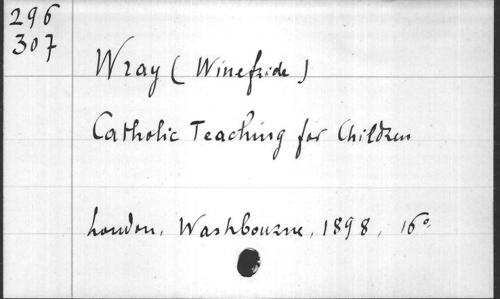 296
307
Wray (Winefride)
Catholic Teaching for Children
London, Washbourne, 1898, 16°,